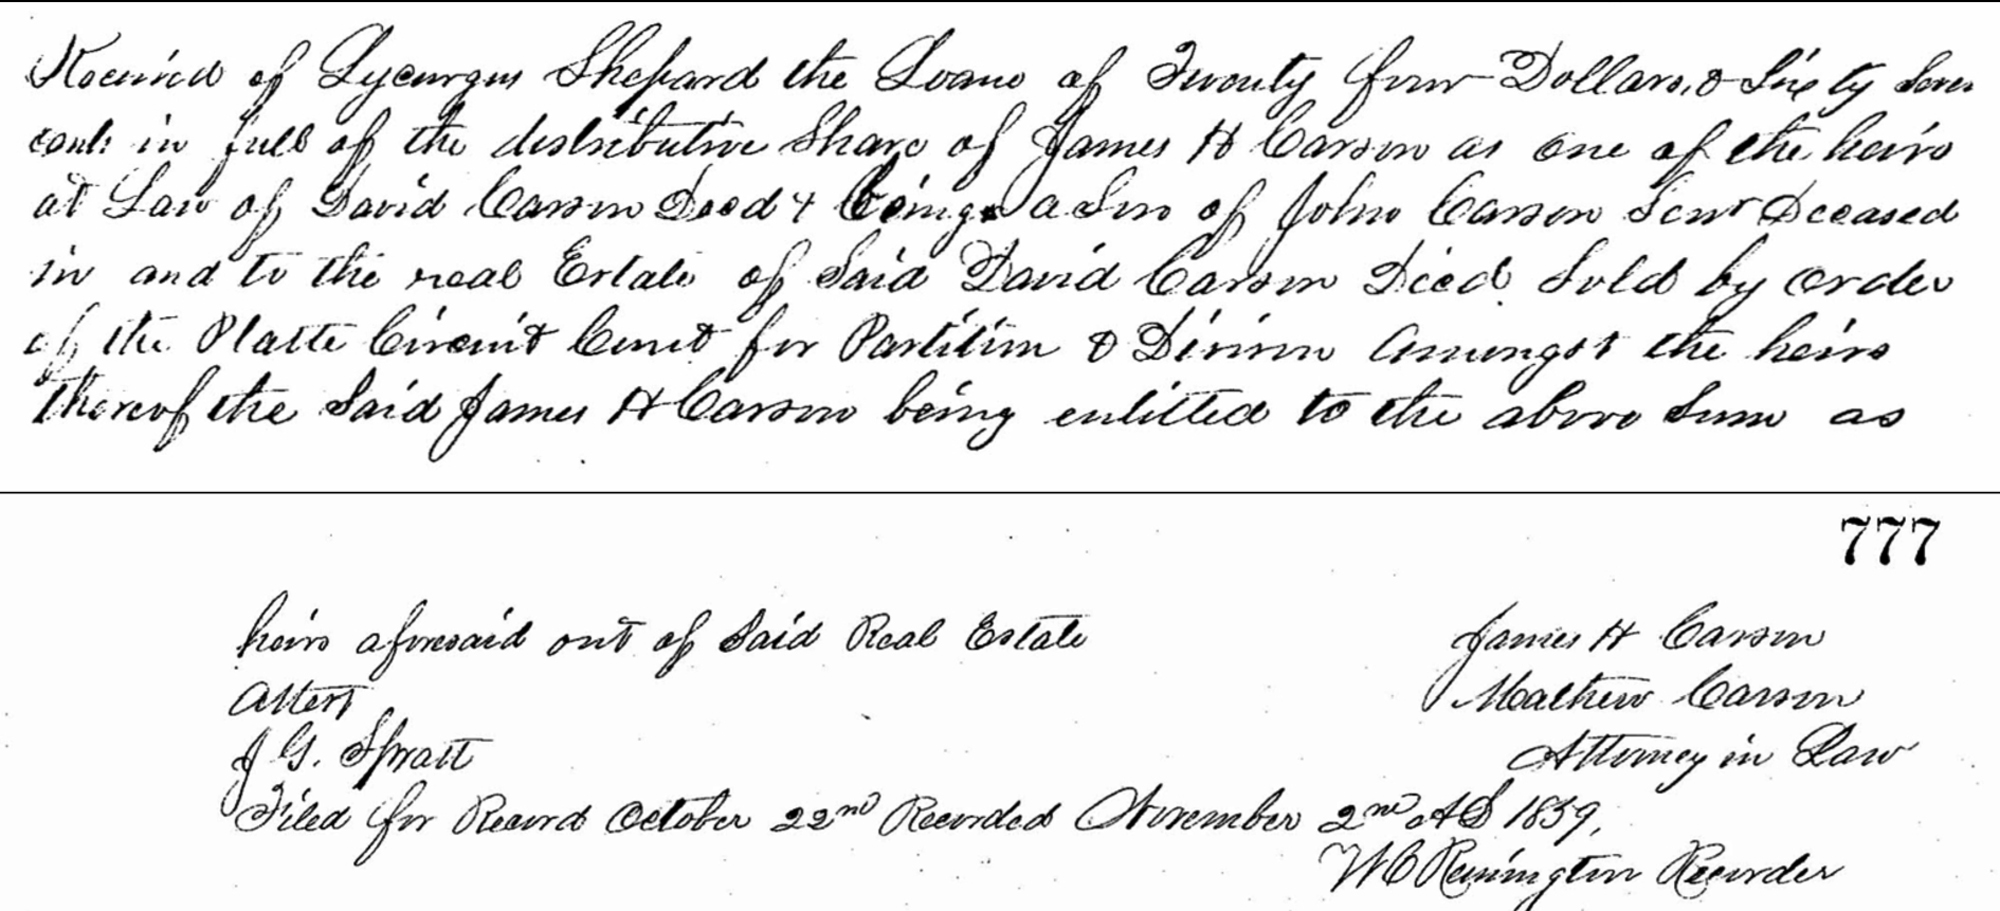 Received of Lycurgus Shepard the Loane of Twenty four Dollars, & Sixty Seven
cents in full of the distributive Share of James H Carson as one of the heirs
at Law of David Carson Decd & being a Son of John Carson Senr Deceased
in and to the real Estate of Said David Carson Decd. Sold by order
of the Platte Circuit Court for Partition & Divison Amungst the heirs
thereof the Said James H Carson being entitled to the above Sum as
777
heirs aforesaid out of Said Real Estate James H Carson
Attest Mathew Carson
J G. Spratt Attorney in Law
Filed for Record October 22nd Recorded November 2nd AD 1859,
W C Remington Recorder